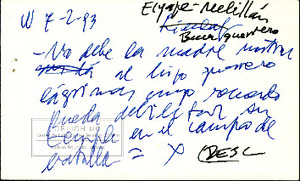 W 7-2-93
Elyape-Melillán
Buen guerrero
- No debe la madre mostrar
al hijo guerrero
lágrimas cuyo recuerdo
pueda debilitar su
temple en el campo de
batalla = X (DESC